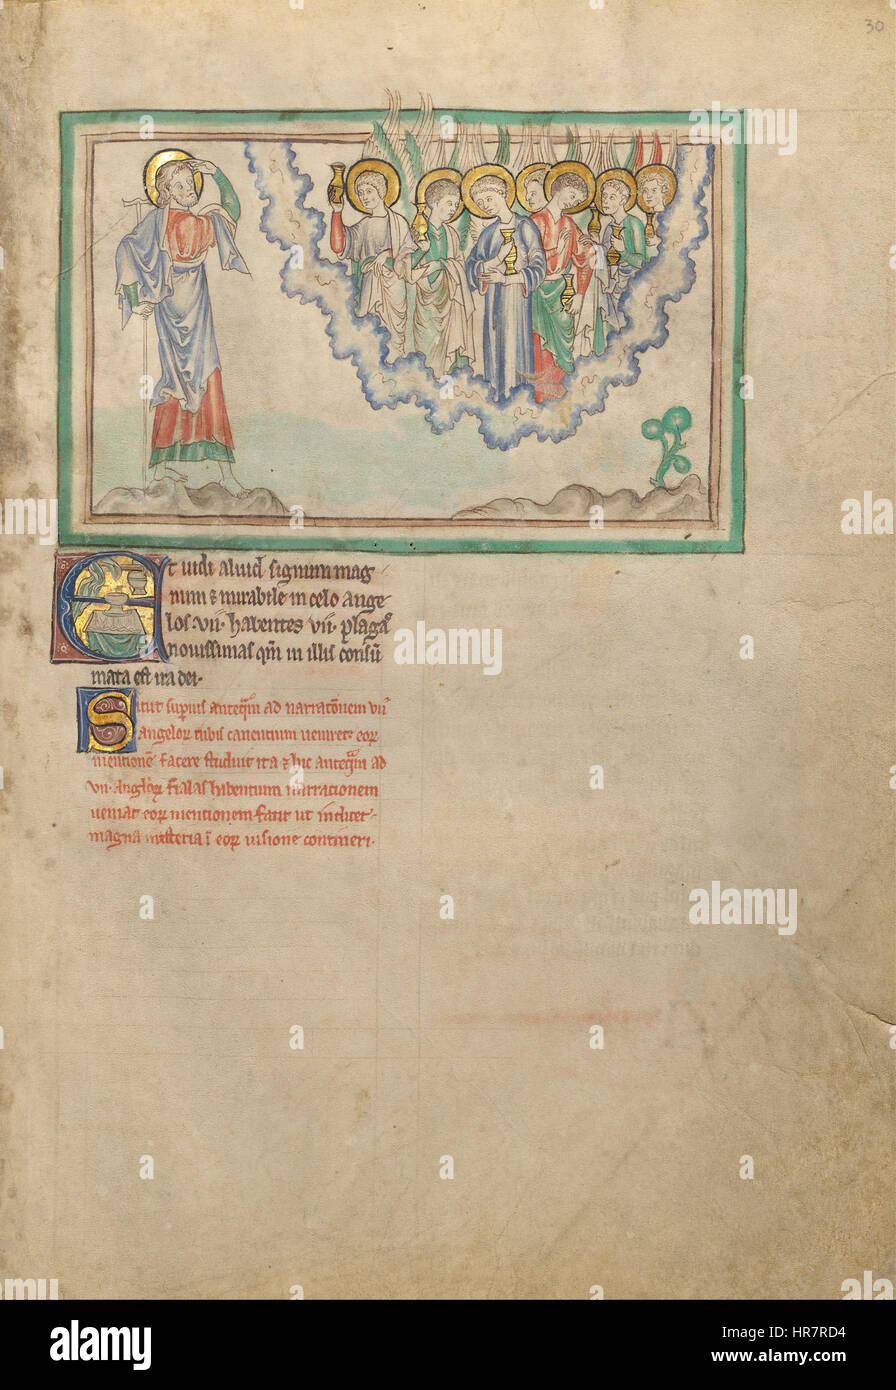 30
Et vidi aliud signum mag
num & mirabile in celo ange
los vii. habentes vii. plagas
novissimas qm in illis consu
mata est ira dei.
Sicut superius anteqm ad narrationem vii
angelor tubis canentium veniret eor
mentione facere studuit ita & hic anteqm ad
vii. anglor fialas hibentum narrationem
veniat eor mentionem facit ut indicet
magna misteria i eor visione contineri.
alamy
Image ID: HR7RD4
www.alamy.com